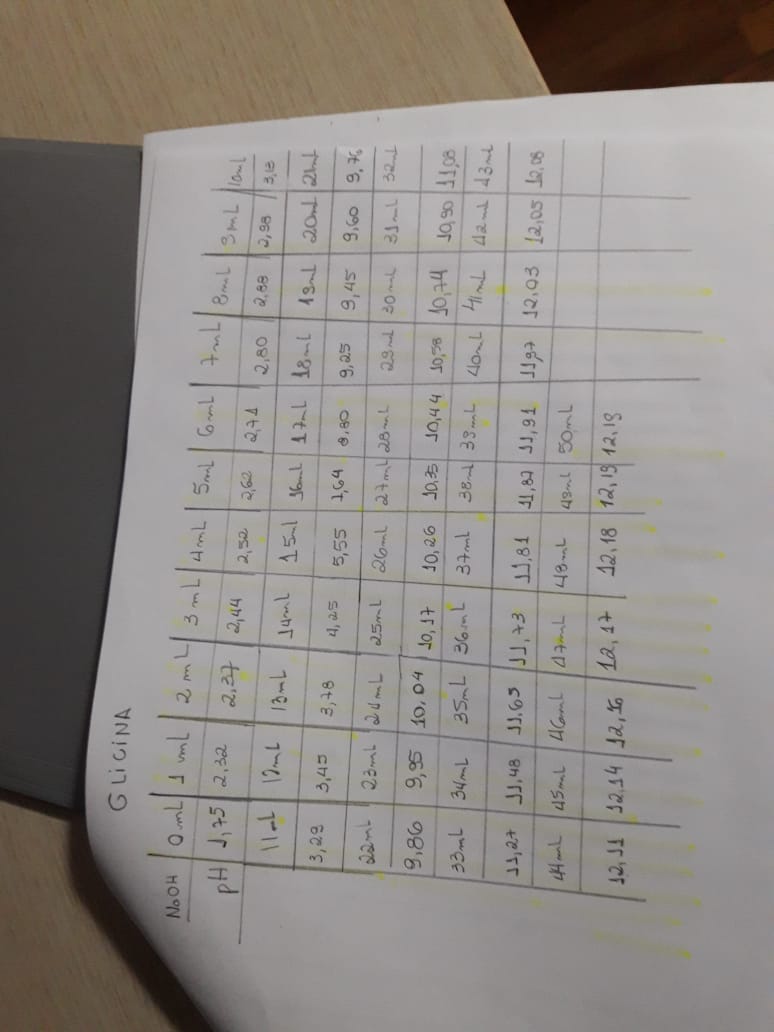 GLICINA
NaOH 0mL 1 mL 2 mL 3 mL 4mL 5mL 6mL 7mL 8mL 9mL 10mL
pH 1,75 2,32 2,37 2,44 2,52 2,62 2,71 2,80 2,88 2,98 3,13
11mL 12mL 13mL 14mL 15mL 16mL 17mL 18mL 19mL 20mL 21mL
3,29 3,45 3,78 4,25 5,55 7,64 8,80 9,25 9,45 9,60 9,76
22mL 23mL 24mL 25mL 26mL 27mL 28mL 29mL 30mL 31mL 32mL
9,86 9,95 10,04 10,17 10,26 10,35 10,44 10,58 10,74 10,90 11,08
33mL 34mL 35mL 36mL 37mL 38mL 39mL 40mL 41mL 42mL 43mL
11,27 11,48 11,65 11,73 11,81 11,87 11,91 11,97 12,03 12,05 12,08
44mL 45mL 46mL 47mL 48mL 49mL 50mL
12,11 12,14 12,16 12,17 12,18 12,19 12,19